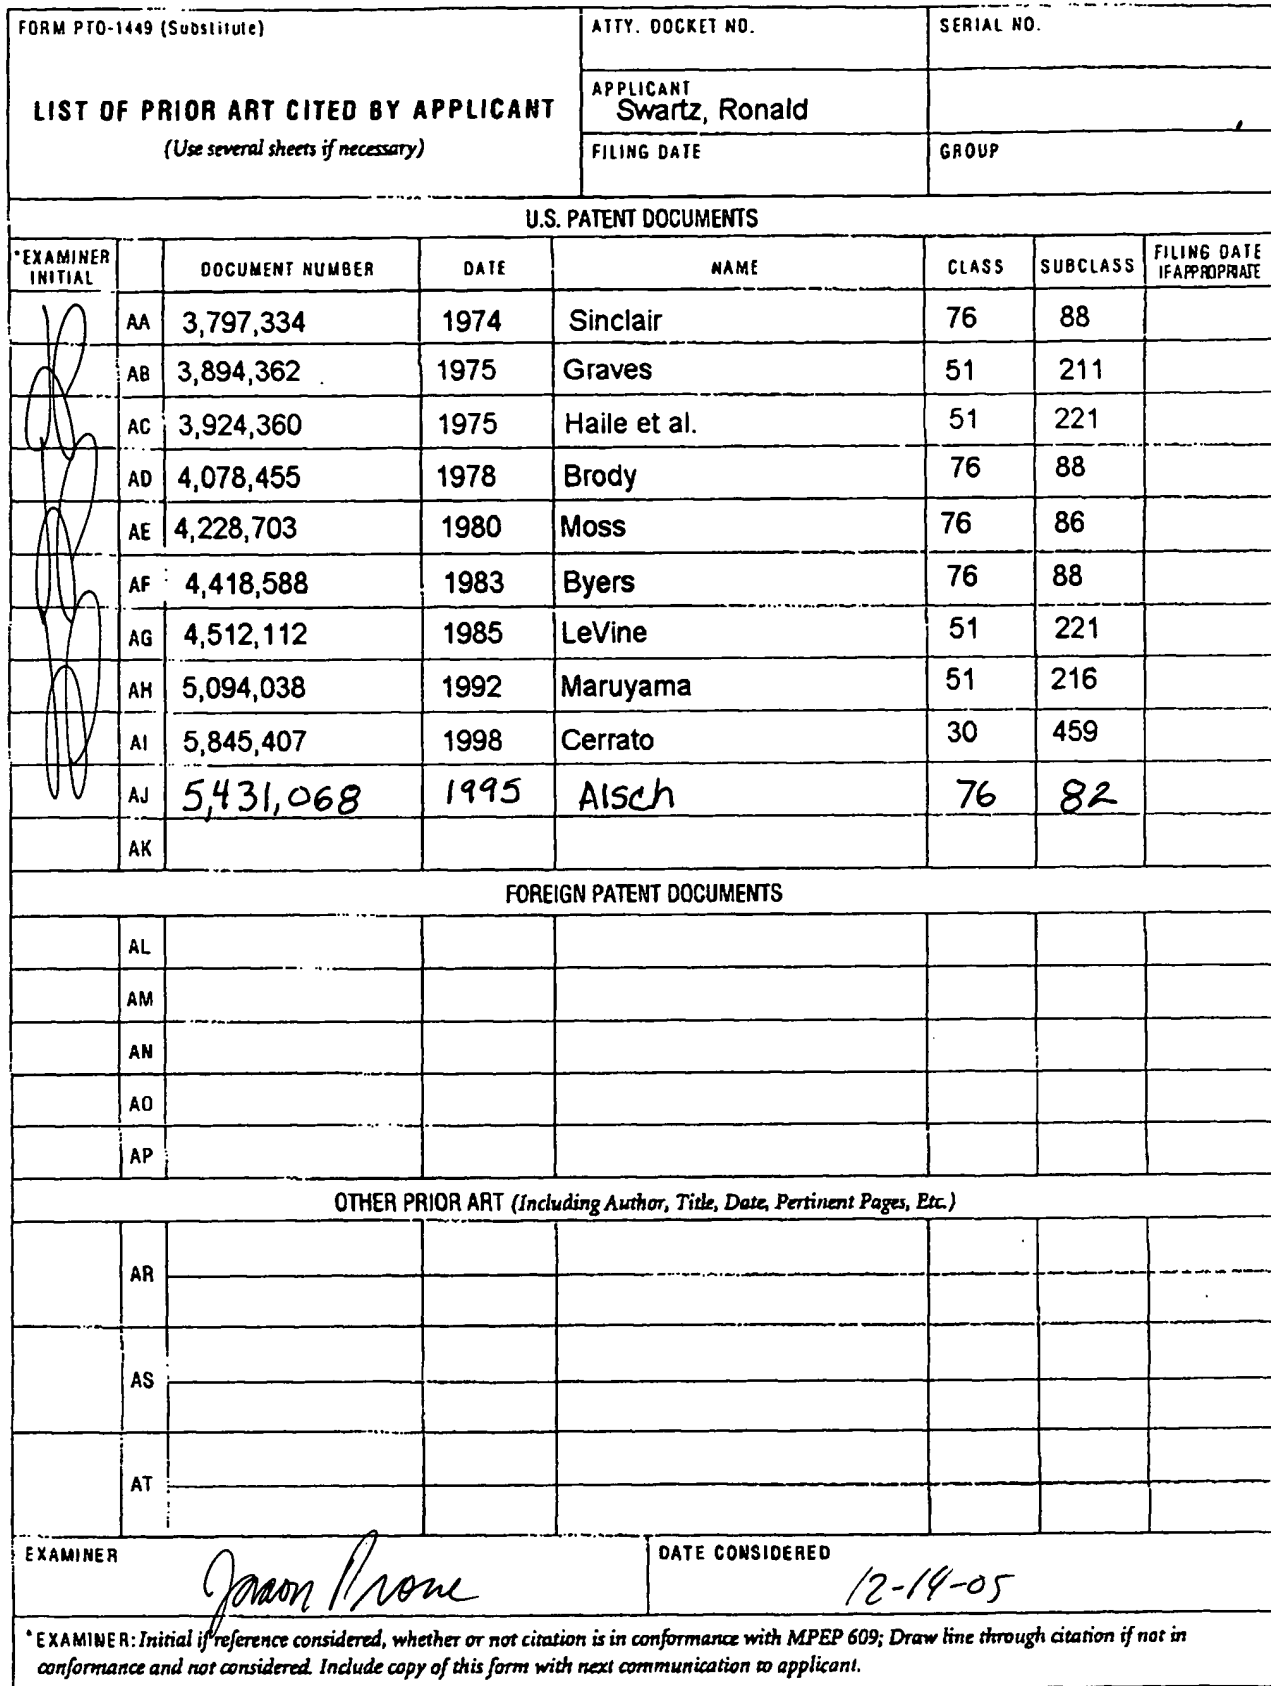 FORM PTO-1449 (Substitute)
ATTY. DOCKET NO.
SERIAL NO.
LIST OF PRIOR ART CITED BY APPLICANT
(Use several sheets if necessary)
APPLICANT
Swartz, Ronald
FILING DATE
GROUP
U.S. PATENT DOCUMENTS
*EXAMINER INITIAL DOCUMENT NUMBER DATE NAME CLASS SUBCLASS FILING DATE IF APPROPRIATE
AA 3,797,334 1974 Sinclair 76 88
AB 3,894,362 1975 Graves 51 211
AC 3,924,360 1975 Haile et al. 51 221
AD 4,078,455 1978 Brody 76 88
AE 4,228,703 1980 Moss 76 86
AF 4,418,588 1983 Byers 76 88
AG 4,512,112 1985 LeVine 51 221
AH 5,094,038 1992 Maruyama 51 216
AI 5,845,407 1998 Cerrato 30 459
AJ 5,431,068 1995 Alsch 76 82
AK
FOREIGN PATENT DOCUMENTS
AL
AM
AN
AO
AP
OTHER PRIOR ART (Including Author, Title, Date, Pertinent Pages, Etc.)
AR
AS
AT
EXAMINER
Jason Prone
DATE CONSIDERED
12-14-05
*EXAMINER: Initial if reference considered, whether or not citation is in conformance with MPEP 609; Draw line through citation if not in
conformance and not considered. Include copy of this form with next communication to applicant.